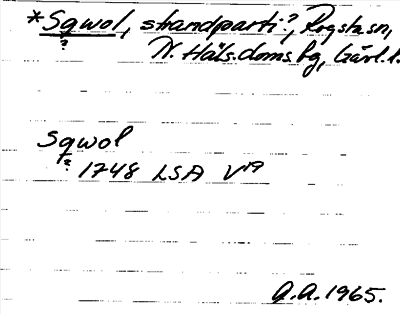 *Sqwol, strandparti?, Rogsta sn,
?
N. Häls. doms. hg, Gävl. l.
Sqwol
? 1748 LSA V19
A.A. 1965.